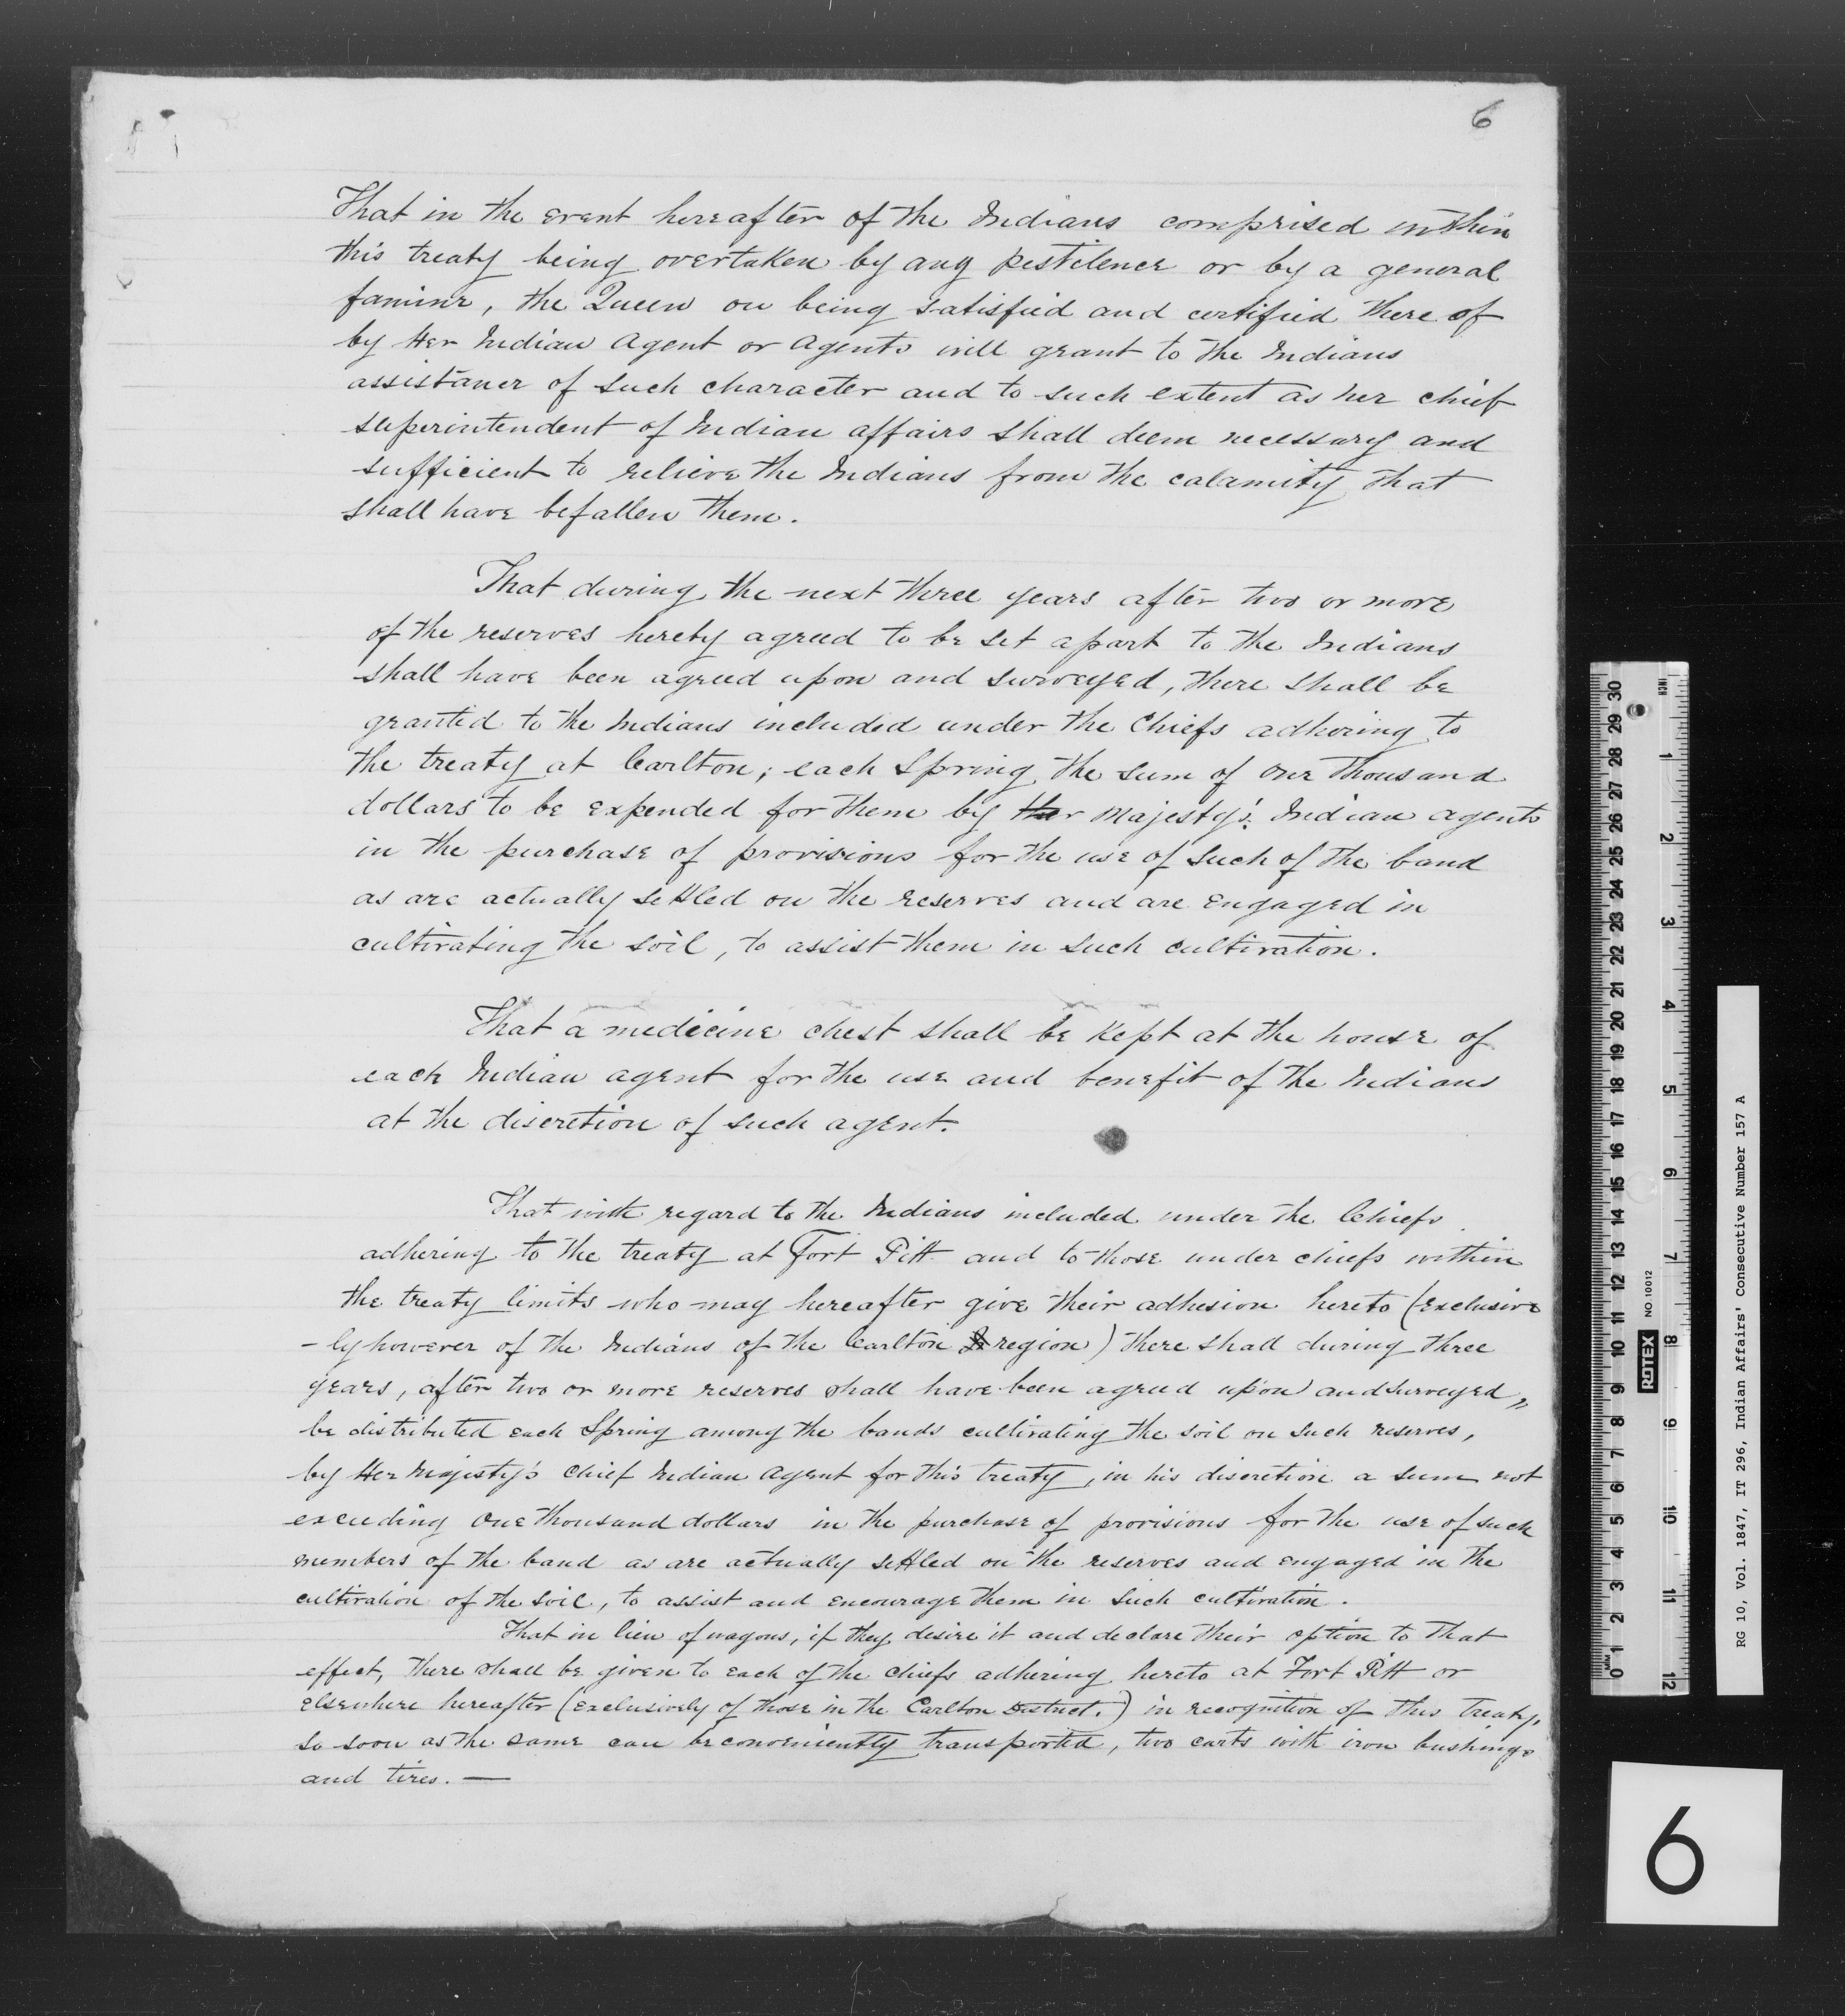 6
That in the event hereafter of the Indians comprised within
this treaty being overtaken by any pestilence or by a general
famine, the Queen on being satisfied and certified there of
by Her Indian Agent or Agents will grant to the Indians
assistance of such character and to such extent as her chief
superintendent of Indian affairs shall deem necessary and
sufficient to relieve the Indians from the calamity that
shall have befallen them.
That during the next three years after two or more
of the reserves hereby agreed to be set apart to the Indians
shall have been agreed upon and surveyed, there shall be
granted to the Indians included under the Chiefs adhering to
the treaty at Carlton; each Spring the sum of one thousand
dollars to be expended for them by Her Majesty's Indian agents
in the purchase of provisions for the use of such of the band
as are actually settled on the reserves and are engaged in
cultivating the soil, to assist them in such cultivation.
That a medicine chest shall be kept at the house of
each Indian agent for the use and benefit of the Indians
at the discretion of such agent.
That with regard to the Indians included under the Chiefs
adhering to the treaty at Fort Pitt and to those under chiefs within
the treaty limits who may hereafter give their adhesion hereto (exclusive
-ly however of the Indians of the Carlton region) there shall during three
years, after two or more reserves shall have been agreed upon and surveyed,,
be distributed each Spring among the bands cultivating the soil on such reserves,
by Her Majesty's Chief Indian Agent for this treaty, in his discretion a sum not
exceeding one thousand dollars in the purchase of provisions for the use of such
members of the band as are actually settled on the reserves and engaged in the
cultivation of the soil, to assist and encourage them in such cultivation.
That in lieu of wagons, if they desire it and declare their option to that
effect, there shall be given to each of the chiefs adhering hereto at Fort Pitt or
elsewhere hereafter (exclusively of those in the Carlton District.) in recognition of this treaty,
so soon as the same can be conveniently transported, two carts with iron bushings
and tires. —
INCH
1 2 3 4 5 6 7 8 9 10 11 12
mm 0 1 2 3 4 5 6 7 8 9 10 11 12 13 14 15 16 17 18 19 20 21 22 23 24 25 26 27 28 29 30
ROTEX NO.10012
RG 10, Vol. 1847, IT 296, Indian Affairs' Consecutive Number 157 A
6